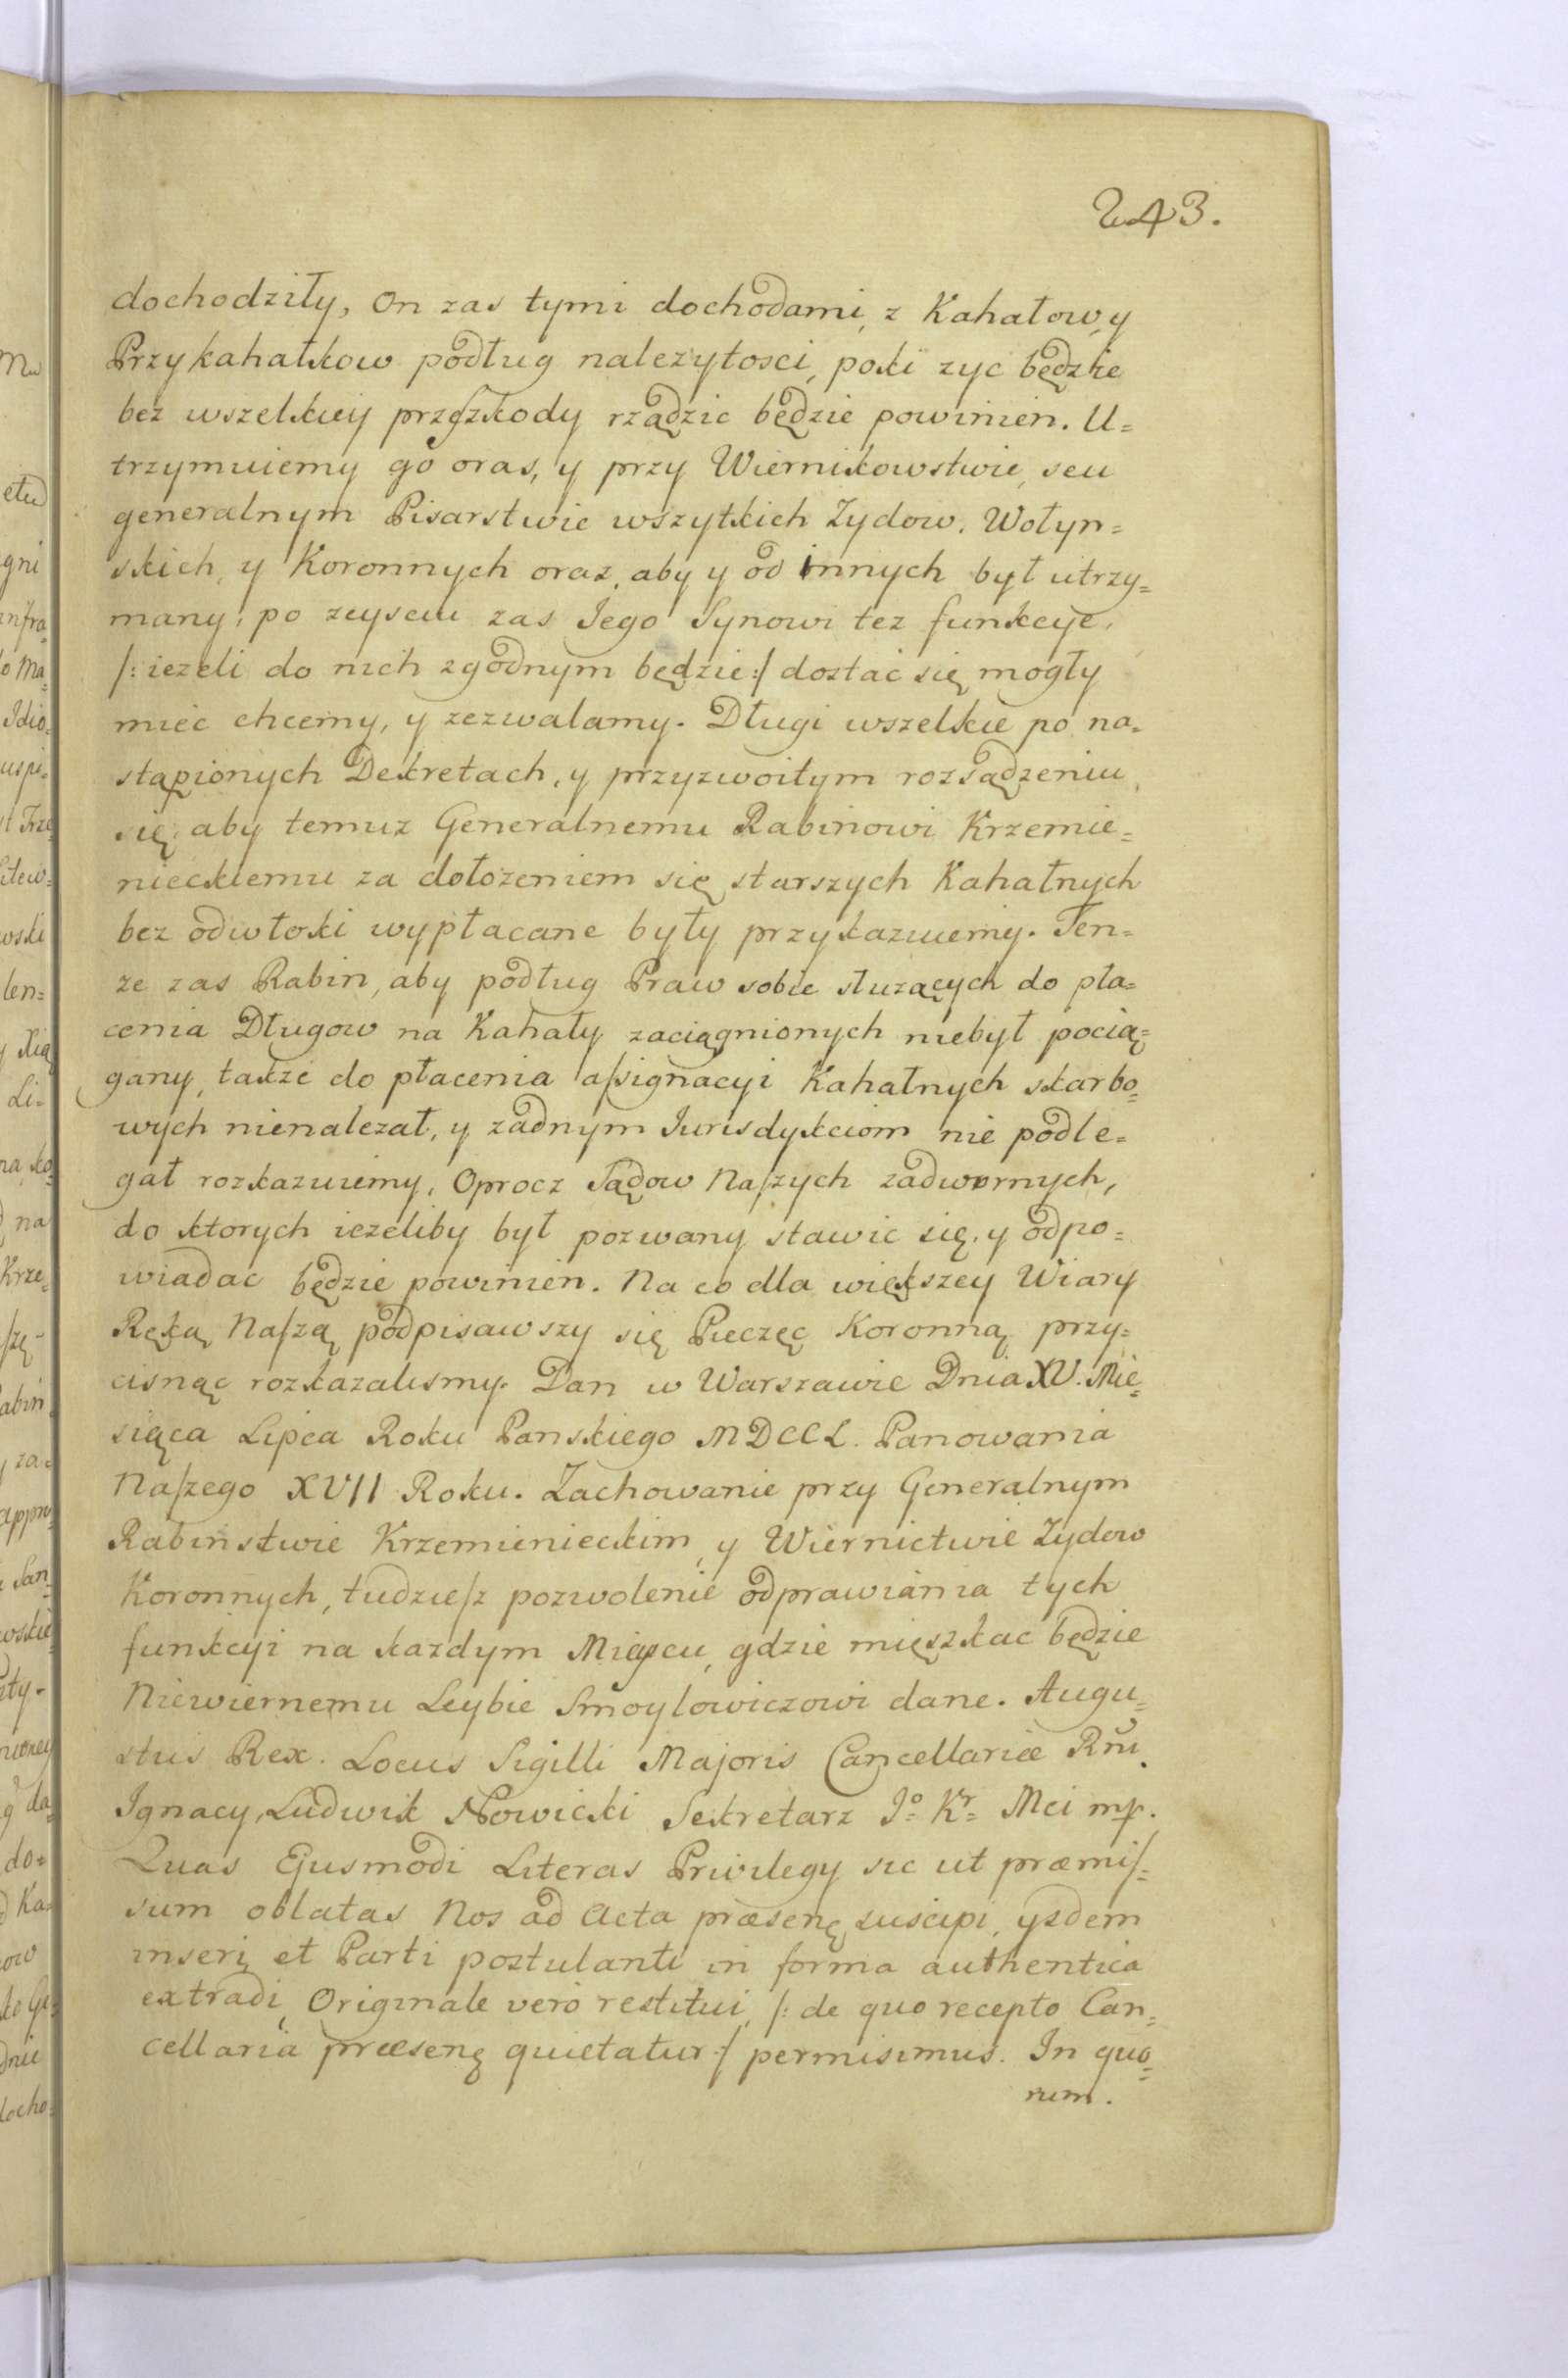 243.
dochodziły, On zas tymi dochodami, z Kahałow, y
Przykahałkow podług nalezytosci, poki zyc będzie
bez wszelkiey przeſzkody rządzic będzie powinien. U=
trzymuiemy go oras, y przy Wiernikowstwie, seu
generalnym Pisarstwie wszytkich Zydow. Wołyn=
skich, y Koronnych oraz, aby y od innych był utrzy=
many; po zeyscu zas Jego Synowi tez funkcye,
/: iezeli do nich zgodnym będzie :/ dostać się mogły
miec chcemy, y zezwalamy. Długi wszelkie po na=
stąpionych Dekretach, y przyzwoitym rozsądzeniu
się, aby temuz Generalnemu Rabinowi Krzemie=
nieckiemu za dołozeniem się starszych Kahałnych
bez odwłoki wypłacane były przykazuiemy. Ten=
ze zas Rabin, aby podług Praw sobie słuzących do pła=
cenia Długow na Kahały zaciągnionych niebył pocią=
gany, takze do płacenia aſsignacyi Kahałnych skarbo=
wych nienalezał, y zadnym Jurisdykciom nie podle=
gał rozkazuiemy, Oprocz Sądow Naſzych zadwornych,
do ktorych iezeliby był pozwany stawic się, y odpo=
wiadac będzie powinien. Na co dla większey Wiary
Ręką Naſzą podpisawszy się Pieczęc Koronną przy=
cisnąc rozkazalismy. Dan w Warszawie Dnia XV. Mie=
siąca Lipca Roku Panskiego MDCCL. Panowania
Naſzego XVII Roku. Zachowanie przy Generalnym
Rabinstwie Krzemienieckim, y Wiernictwie Zydow
Koronnych, tudzieſz pozwolenie odprawiania tych
funkcyi na kazdym Mieyscu, gdzie mięszkac będzie
Niewiernemu Leybie Smoylowiczowi dane. Augu=
stus Rex. Locus Sigilli Majoris Cancellariæ Rni.
Ignacy, Ludwik Nowicki Sekretarz Jo= Kr= Mci mp.
Quas Ejusmodi Literas Privilegy sic ut præmiſ=
sum oblatas Nos ad Acta præsenę suscipi, ysdem
inseri et Parti postulanti in forma authentica
extradi, Originale vero restitui, /: de quo recepto Can=
cellaria præsenę quietatur :/ permisimus. In quo=
rum.